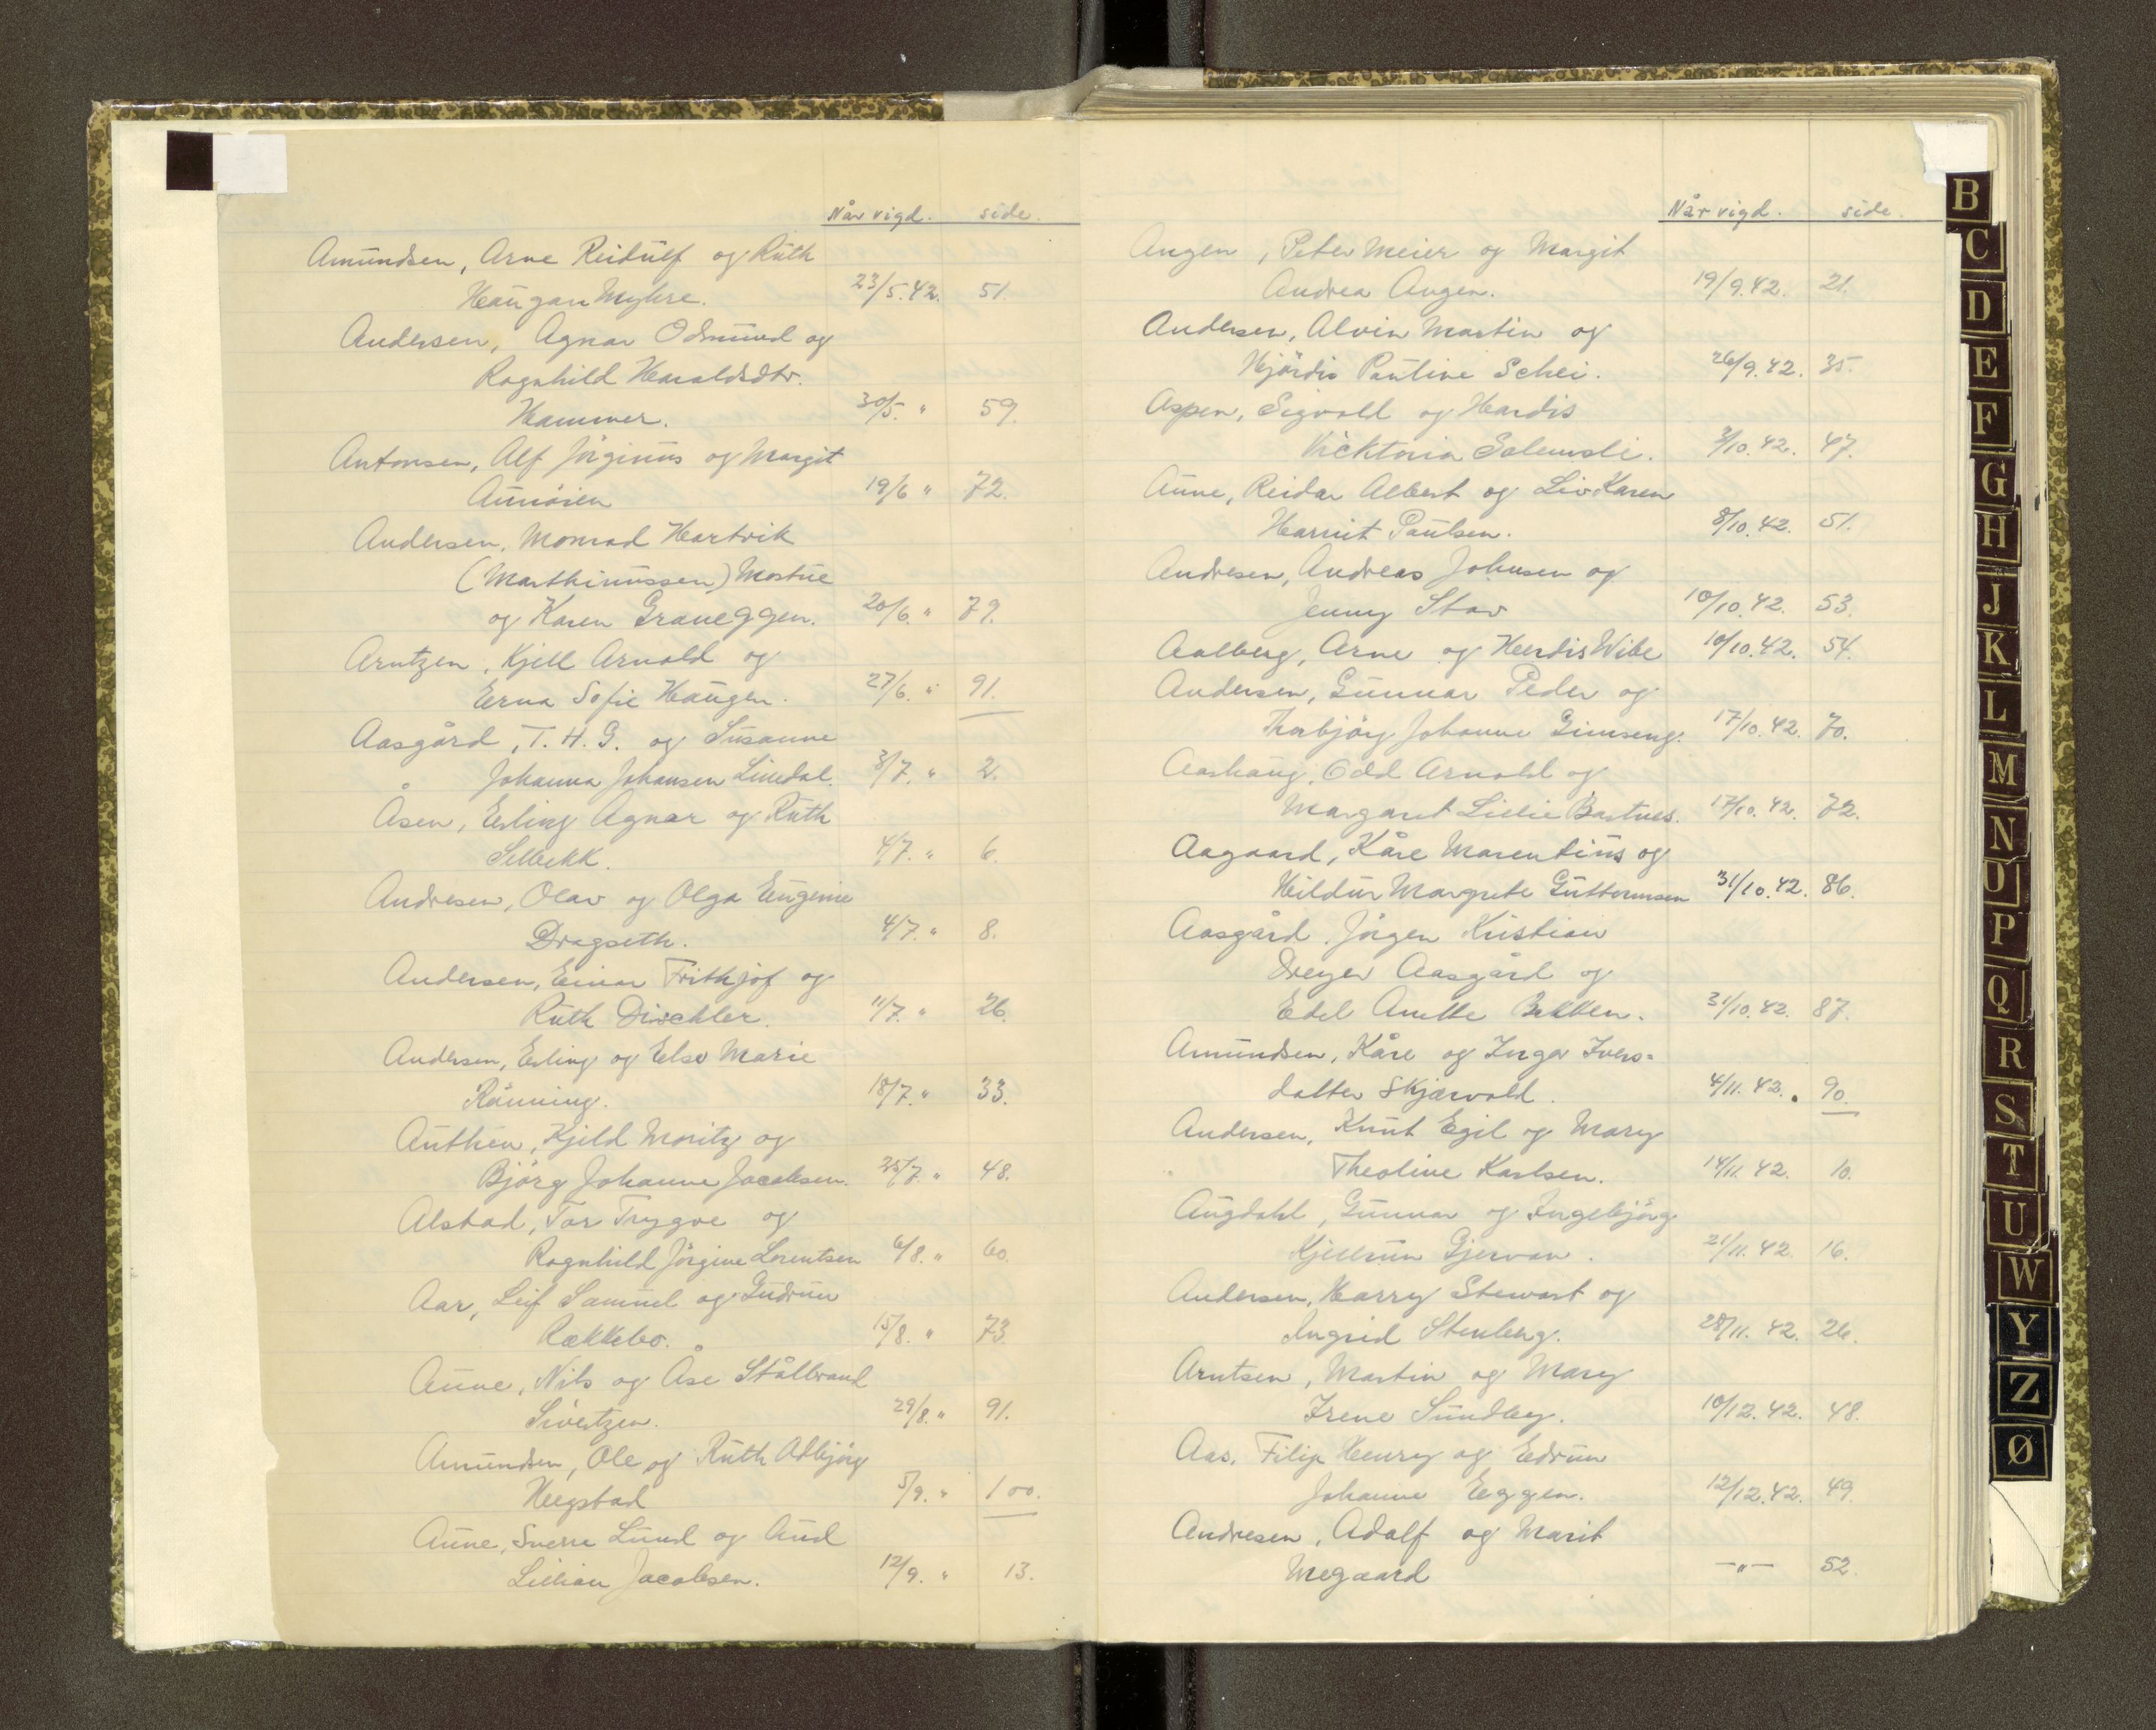 Når vigd. side.
Amundsen, Arne Reidulf og Ruth
Haugan Myhre. 23/5.42. 51.
Andersen, Agnar Odmund og
Ragnhild Haraldsdtr.
Hammer. 30/5. " 59.
Antonsen, Alf Jörginus og Margit
Aunösien 19/6 " 72.
Andersen, Monrad Hartvik
(Marthinussen) Mostue
og Karen Graneggen. 20/6. " 79.
Arntzen, Kjell Arnold og
Erna Sofie Haugen. 27/6. " 91.
Aasgård, T. H. G. og Susanne
Johanna Johansen Lindal. 3/7. " 2.
Åsen, Erling Agnar og Ruth
Selbekk. 4/7. " 6.
Andresen, Olav og Olga Eugenie
Dragseth. 4/7. " 8.
Andersen, Einar Frithjof og
Ruth Dischler. 11/7. " 26.
Andersen, Erling og Else Marie
Rönning. 18/7. " 33.
Authén, Kjeld Moritz og
Björg Johanne Jacobsen. 25/7. " 48.
Alstad, Tor Trygve og
Ragnhild Jörgine Lorentsen 6/8. " 60.
Aar, Leif Samuel og Gudrun
Rækkebo. 15/8. " 73.
Aune, Nils og Åse Stålbrand
Sivertzen. 29/8. " 91.
Amundsen, Ole og Ruth Adbjörg
Hegstad 5/9. " 100.
Aune, Sverre Lund og Aud
Lillian Jacobsen. 12/9. " 13.
Når vigd. side.
Angen, Peter Meier og Margit
Andrea Angen. 19/9.42. 21.
Andersen, Alvin Martin og
Hjördis Pauline Schei. 26/9.42. 35.
Aspen, Sigvald og Hardis
Vicktoria Solemsli. 3/10.42. 47.
Aune, Reidar Albert og Liv Karen
Harriet Paulsen. 8/10.42. 51.
Andresen, Andreas Johnsen og
Jenny Stav 10/10.42. 53.
Aalberg, Arne og Herdis Wibe 10/10.42. 54.
Andersen, Gunnar Peder og
Thorbjörg Johanne Gimseng. 17/10.42. 70.
Aashaug, Odd Arnold og
Margaret Lillie Bartnes. 17/10.42. 72.
Aagaard, Kåre Marentius og
Hildur Margrete Guttormsen 31/10.42. 86.
Aasgård, Jörgen Kristian
Dreyer Aasgård og
Edel Anette Bekken. 31/10.42. 87.
Amundsen, Kåre og Inga Ivers=
datter Skjærvold. 4/11.42. 90.
Andersen, Knut Egil og Mary
Theoline Karlsen. 14/11.42. 10.
Augdahl, Gunnar og Ingebjörg
Kjellrun Gjervan. 21/11.42. 16.
Andersen, Harry Stewart og
Ingrid Stenberg. 28/11.42. 26.
Arntsen, Martin og Mary
Irene Sundby. 10/12.42. 48.
Aas, Filip Henry og Edrun
Johanne Eggen. 12/12.42. 49.
Andresen, Adolf og Marit
Megaard —"— 52.
B
C
D
E
F
G
H
J
K
L
M
N
O
P
Q
R
S
T
U
W
Y
Z
Ø